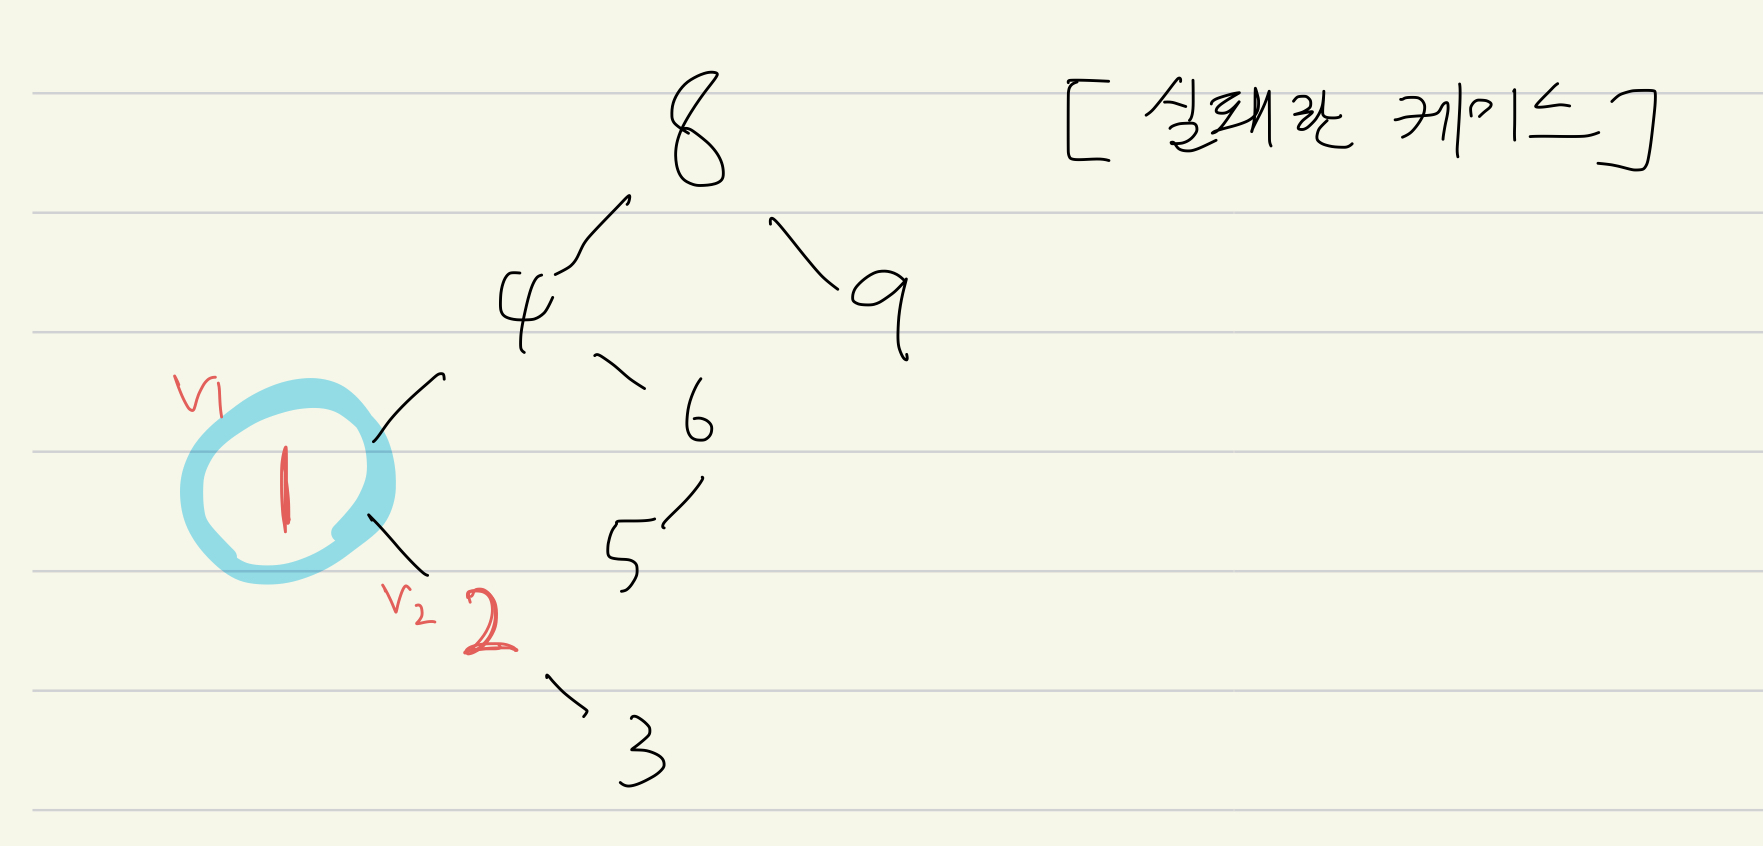 [ 실패한 케이스 ]
8
4 9
V1
6
1
5
V2 2
3